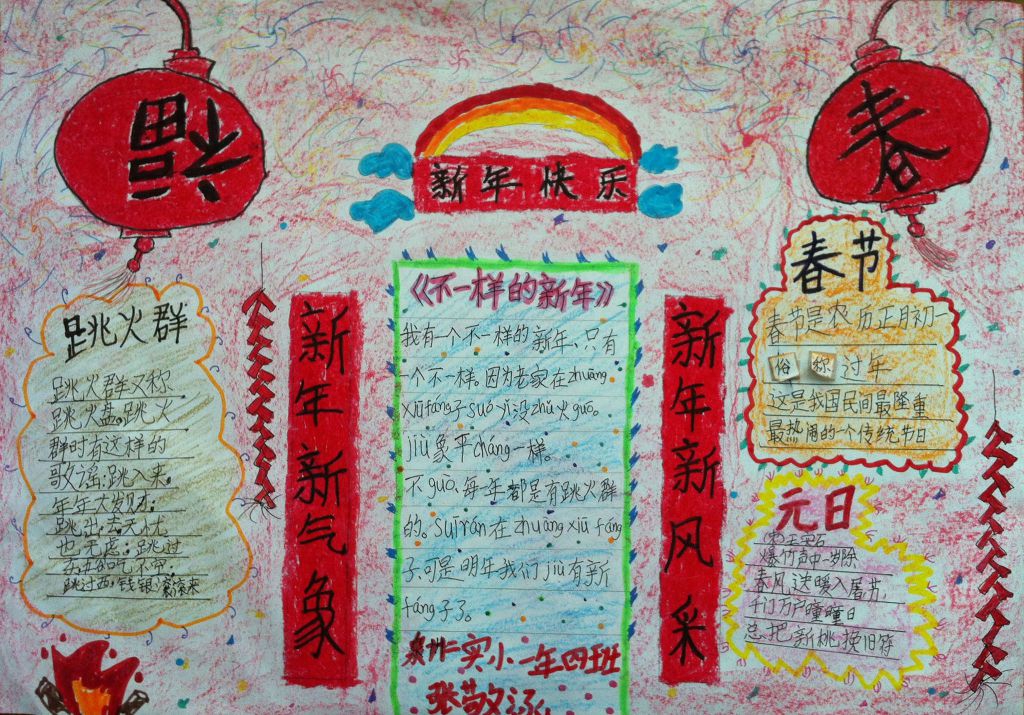 福
春
新年快乐
跳火群
跳火群又称
跳火盆。跳火
群时有这样的
歌谣:跳入来。
年年大发财;
跳出去无忧
也无虑;跳过
东,五谷吃不空;
跳过西,钱银滚滚来
新年新气象
《不一样的新年》
我有一个不一样的新年、只有
一个不一样。因为老家在zhuāng
xiūfáng子suó yǐ没zhǔ火guō。
jiù象平cháng一样。
不guō、每一年都是有跳火群
的。suīrán在zhuāngxiū fáng
子、可是明年我们jiù有新
fáng子了。
泉州仁实小一年四班
新年新风采
春节
春节是农历正月初一
俗称过年
这是我国民间最隆重
最热闹的一个传统节日
元日
爆竹声中一岁除
春风送暖入屠节
千门万户曈曈日
总把新桃换旧符